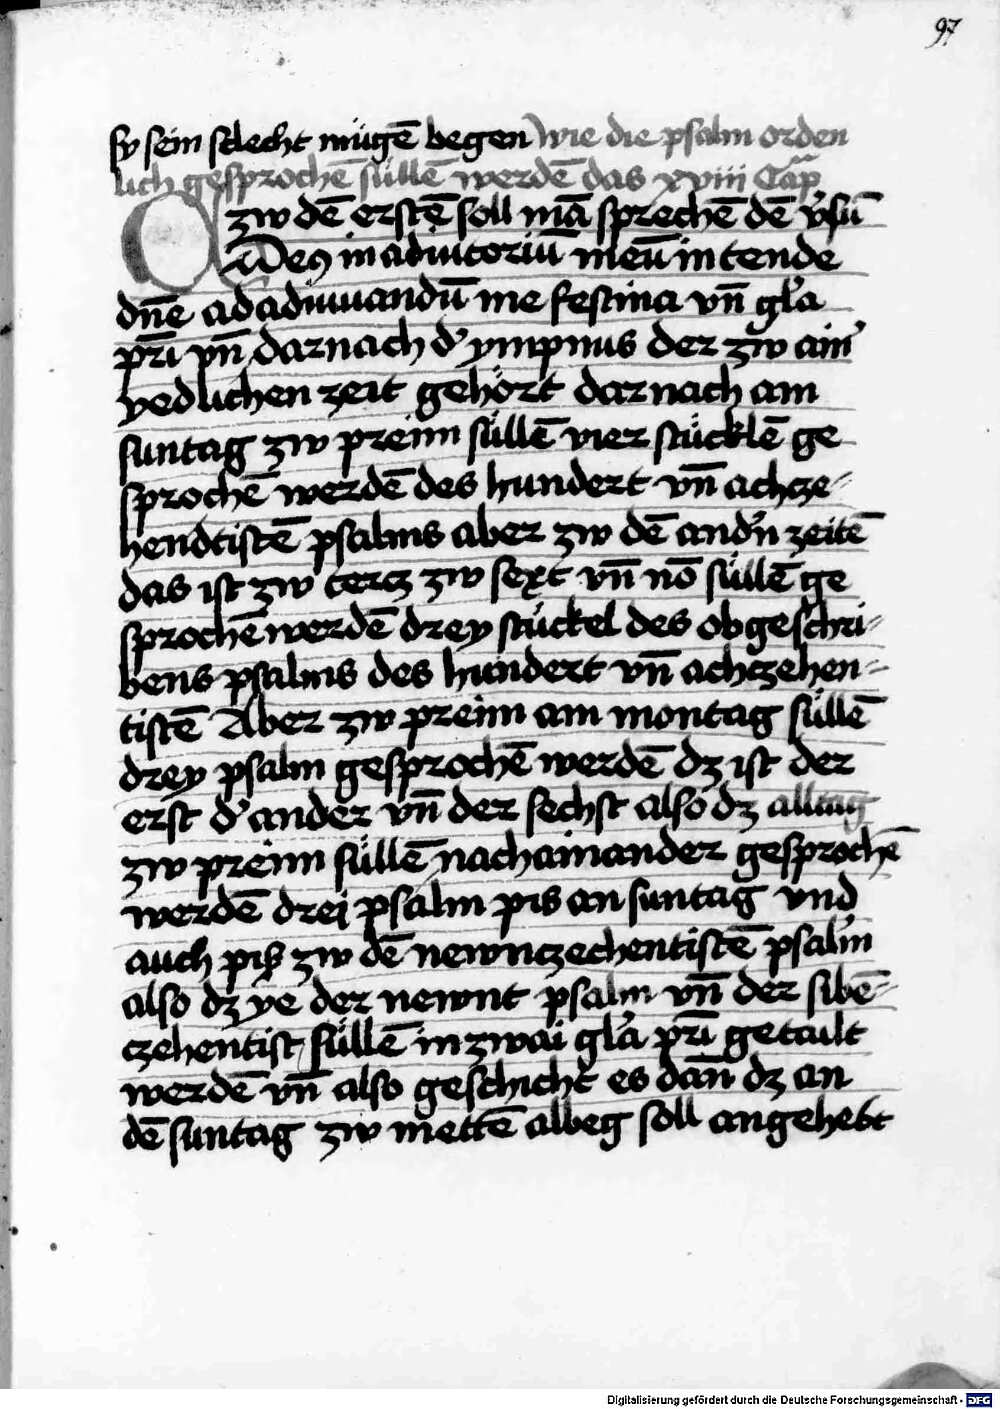 97
sy sein slecht mügē begen wie die psalm orden
lich gesprochē süllē werdē das xviii Cap̄
zw dē erstē soll mā sprechē dē v̓sū
Deꝯ in adiutoriū meū intende
dn̄e ad adiuuandū me festina vn̄ gl̓a
pr̄i vn̄ darnach d̓ ympnus der zw ain̓
yedlichen zeit gehört darnach am
suntag zw preim süllē vier stücklē ge
sprochē werdē des hundert vn̄ achcze-
hendtistē psalms aber zw dē and̓n zeitē
das ist zw tercz zw sext vn̄ nō süllē ge
sprochē werdē drey stückel des obgeschri-
bens psalms des hundert vn̄ achczehen-
tistē Aber zw preim am montag süllē
drey psalm gesprochē werdē dz ist der
erst d̓ ander vn̄ der sechst also dz alltag
zw preim süllē nachainander gesprochē
werdē drei psalm pis an suntag vnd
auch piß zw dē newnczechentistē psal̓m
also dz ye der newnt psalm vn̄ der sibē-
czehentist süllē in zwai gl̓a pr̄i getailt
werdē vn̄ also geschicht es dan̄ dz an
dē suntag zw mettē albeg soll angehebt
Digitalisierung gefördert durch die Deutsche Forschungsgemeinschaft - DFG